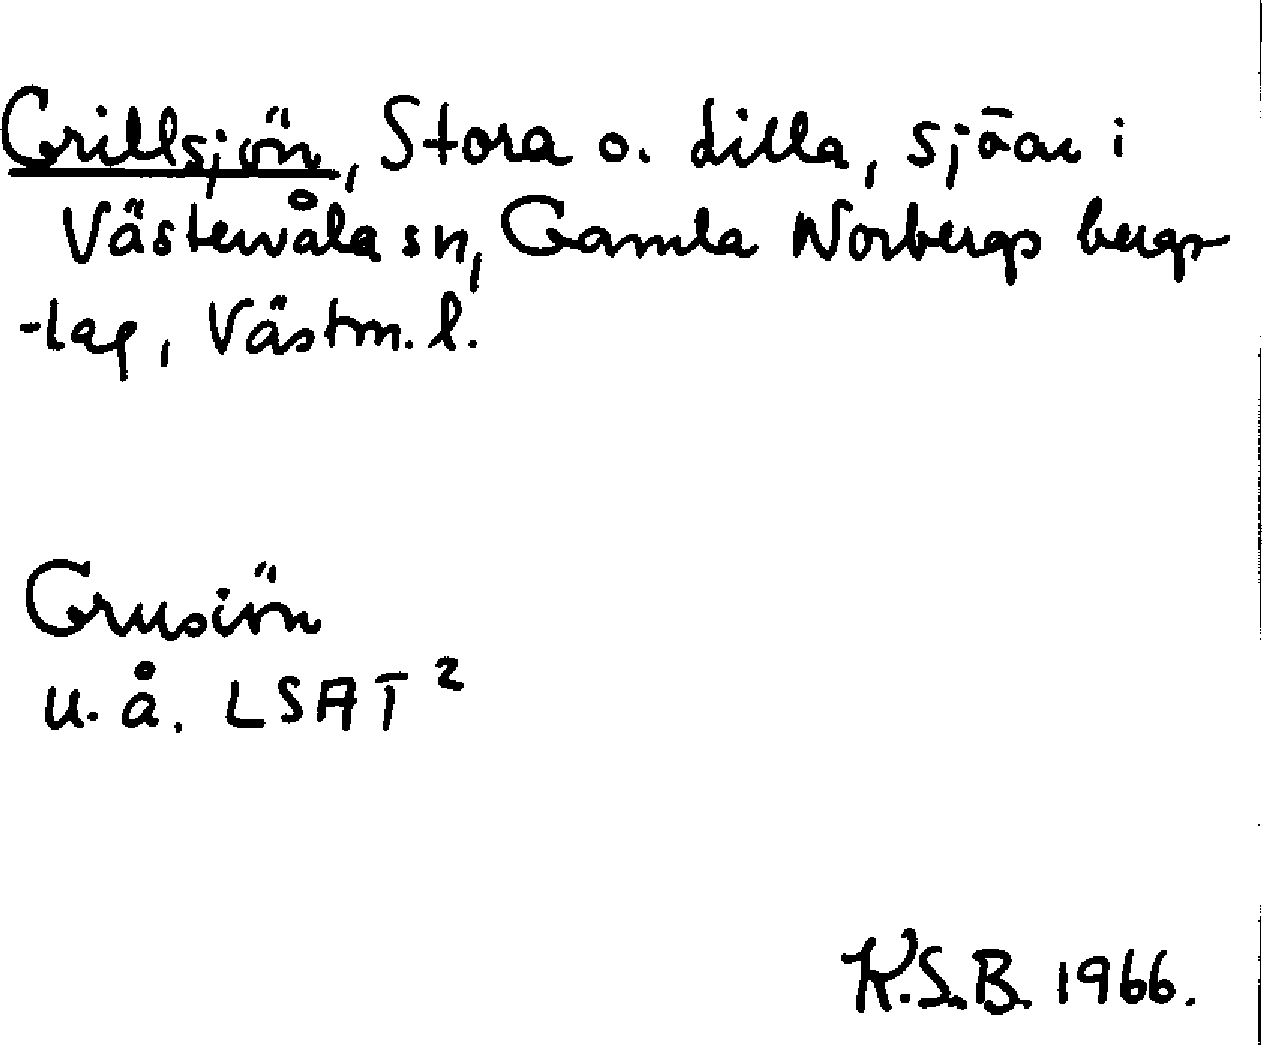 Grillsjön, Stora o. Lilla, sjöar i
Västervåla sn, Gamla Norbergs bergs
-lag, Västm. l.
Grusiön
u. å. LSAT²
K.S.B. 1966.